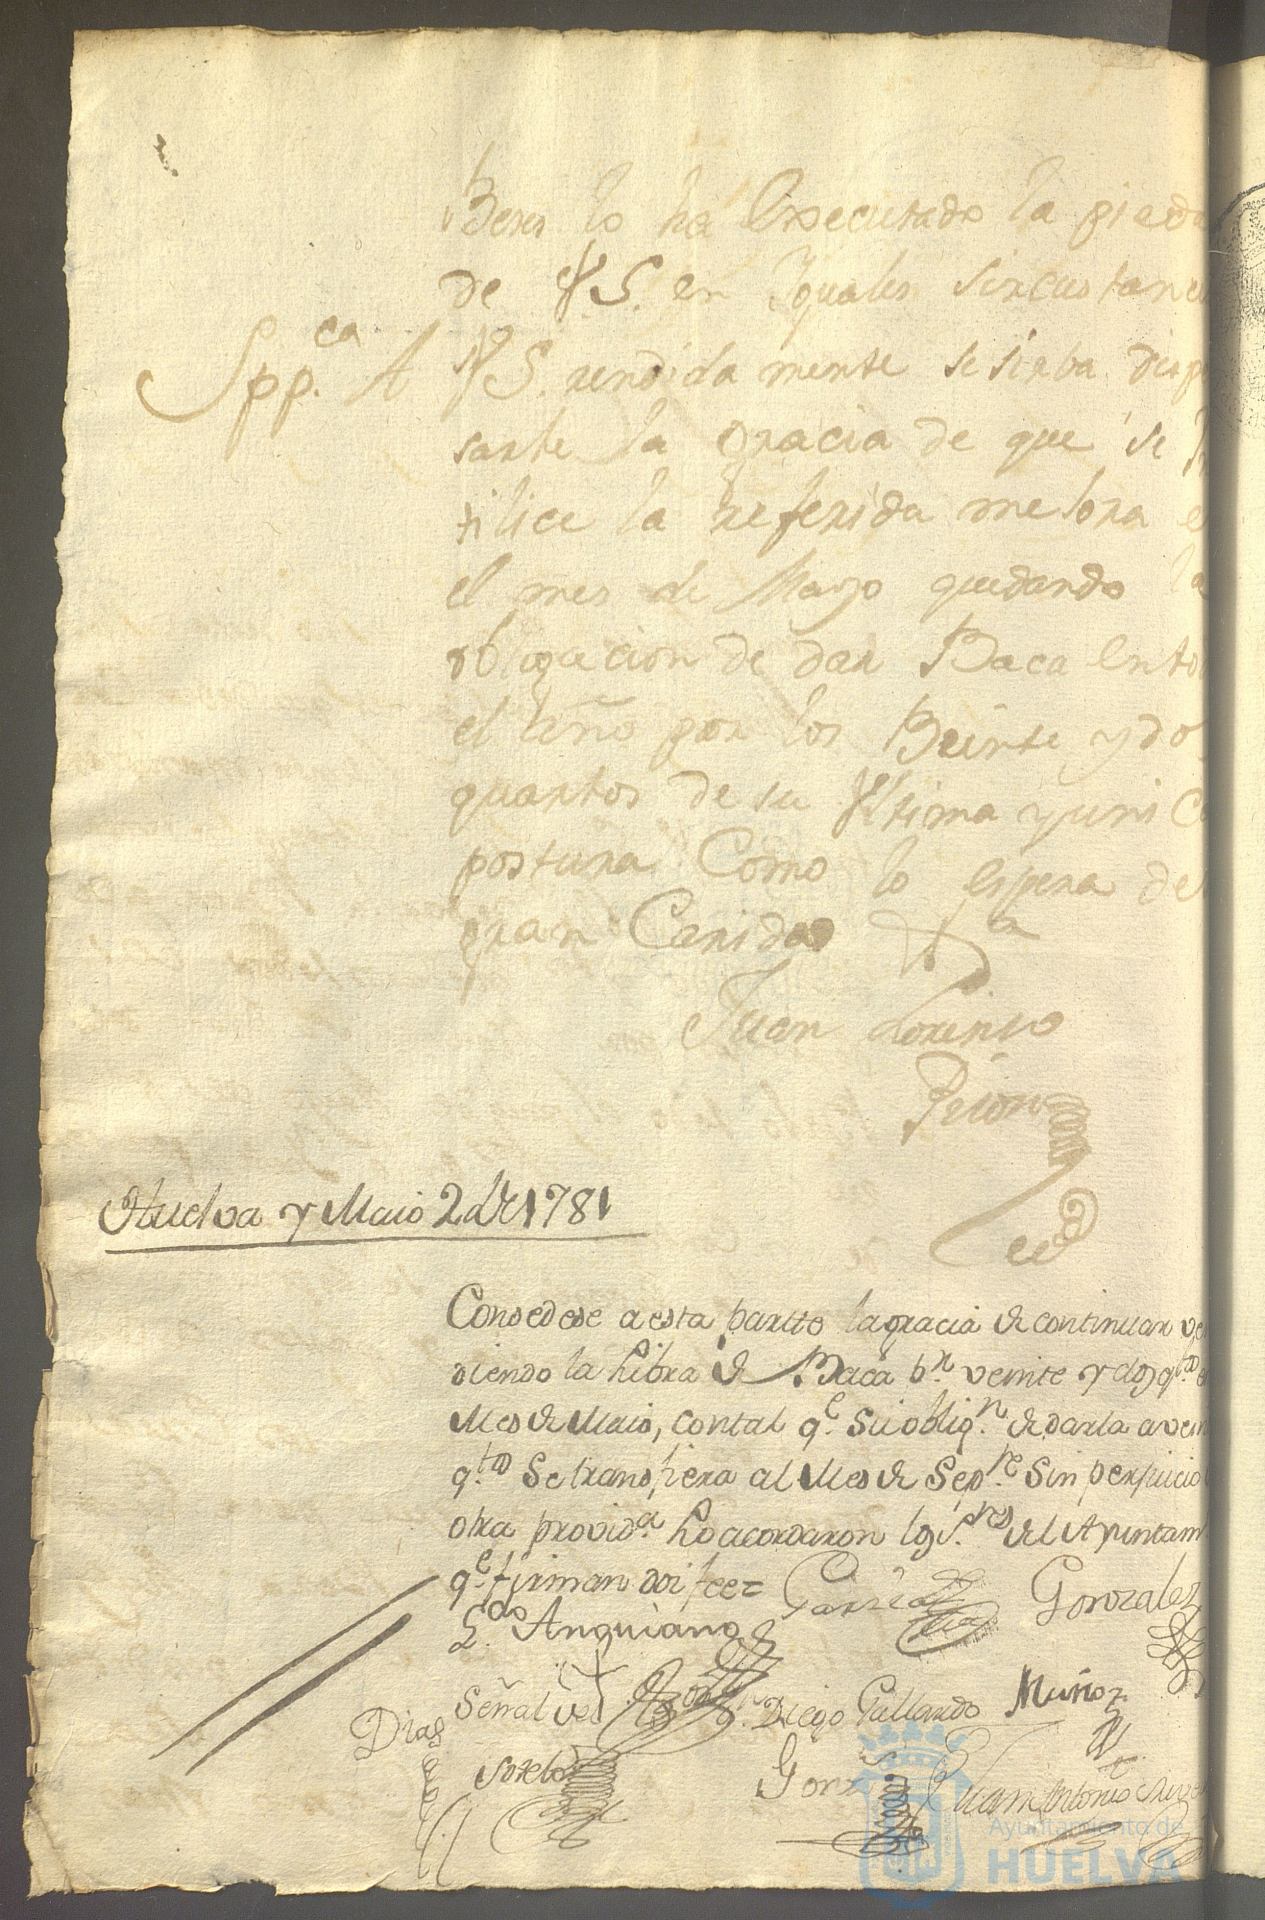 Beses lo ha Executado la pieda
de VS. en Iguales sircustanci
Spp.ca A VS. rendida mente se sirba disp
sarle la gracia de que se
tilice la referida mejora e
el mes de Mayo quedando la
obligacion de dar Baca Ento
el año por los Beinte y do
quartos de su Vltima y uni C
postura Como lo Espera de
gran Caridad
Juan Lorenso
Huelva y Maio 2 de 1781
Consedese a esta parte la gracia de continuar ve
diendo la Libra de Baca p.r veinte y dos q.tos
Mes de Maio, con tal q.e su oblig.n de darla a vein
q.tos Se transfiera al Mes de Sep.re Sin perjuicio
otra provid.a Lo acordaron los S.res del Ayuntam
q.e firman doi fee= Garzia Gonzalez
L.do Anguiano
Señal de Diego Gallardo Muñoz
Dias
Sotelo Gonz Juan Antonio
Ayuntamiento de
HUELVA